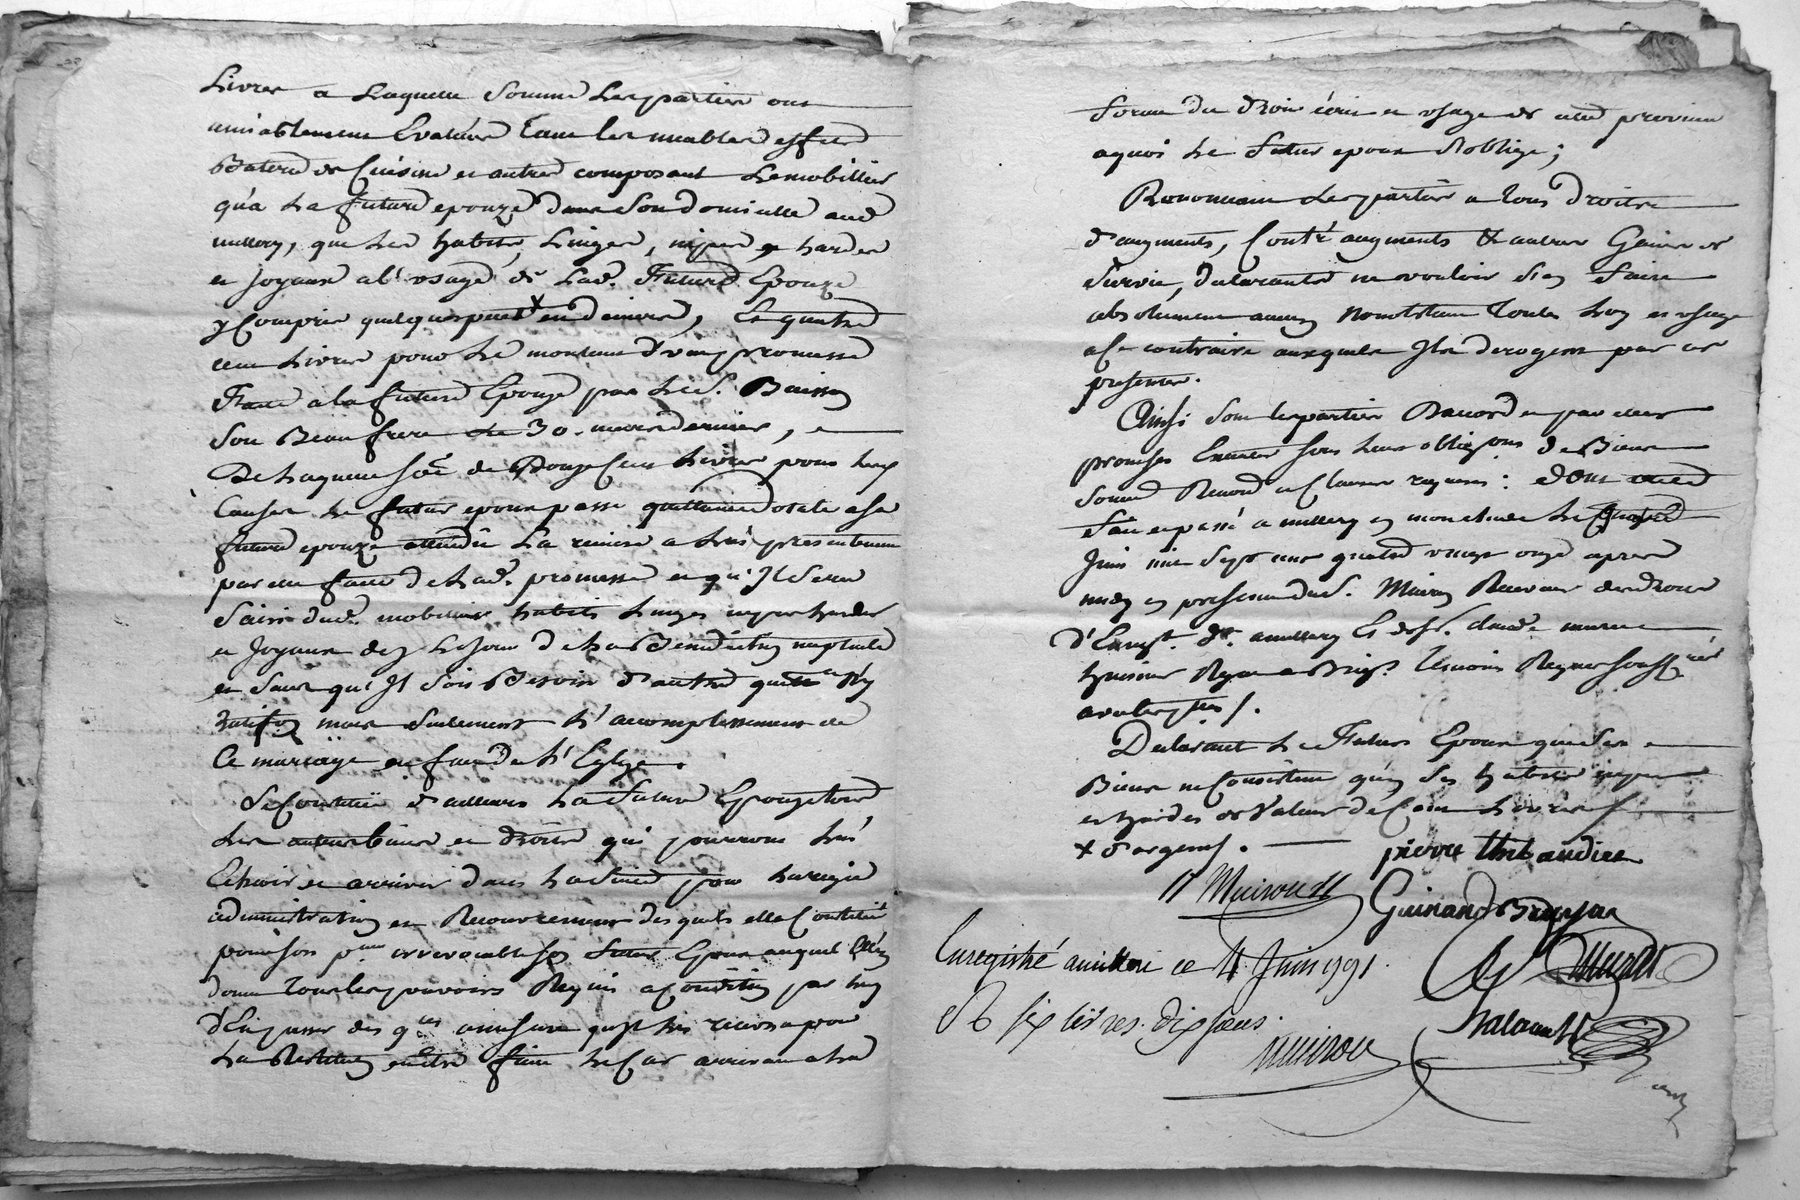 Livres a Laquelle Somme Les parties ont
amiablement Evalués tant les meubles effets
Baterie de Cuisine et autres composant Le mobillier
qu'a La future epouze dans Son domicille aud
millery, que Les habits, Linges, nipes et hardes
et Joyaux a l'usage de Lad. Future Epouze
y Compris quelques pieces × en deniers, Et quatre
cent Livres pour Le montant d'une promesse
Faite a la future Epouze par Le S. Buisson
Son Beau frere Le 30. mars dernier, et
De Laquelle Som̃e de Douze Cent Livres pour Les
Causes Le futur epoux passe quittance dotale a Sa
future epouze attendu La remise a Lui presentement
par elle faite de Lad. promesse et qu'Il Sera
Saisi dud. mobillier habits Linges nipes hardes
et Joyaux dez Le Jour de La Benediction nuptiale
et Sans qu'Il Soit Besoin d'autre quittance Ny
mais Seulement L'accomplissement de
Ce mariage en face de L'Eglize.
Se Constitue d'ailleurs La future Epouze tous
Les autres biens et droits qui pourront Lui
Echoir et arriver dans La Suite, pour La regie
administration et Recouvrement desquels elle Constitue
pour Son p. irrevocable Son futur Epoux auquel Elle
donne tous les pouvoirs Requis a Condition par Luy
d'En passer des q. a mesure qu'il Les recevra pour
La Restitution en être faite Le Cas arrivant a La
forme du droit écrit et usage de cette province
a quoi Le futur epoux S'oblige;
Renonceant Les parties a tous droits
d'augments, Contr'augments & autres Gains de
Survie, declarants ne vouloir S'en faire
absolument aucun Nonobstant toutes Loy et usage
a Ce contraire auxquels Ils derogent par ces
presentes.
Ainsi Sont Les parties D'accord et par elles
promises Executer Sous Leurs obligons. de Biens
Soumis Renonc et Clauses requises: dont acte
fait et passé a millery en mon etude Le quatre
Juin mil Sept cent quatre vingt onze apres
midy en presence du S. Receveur des droits
d'Enregt. a millery Et de S. claude
huissier Royal a Temoins Requis Soussignés
avec les parties /.
Declarant Le Futur Epoux que Ses
Biens ne Consistent qu'en Ses habits nipes
et hardes de Valeur de Cent Livres /
× d'argent. pierre thibaudier
Guinand
Enregistré a millerï ce 4 Juin 1791.
R six livres. dix sous.